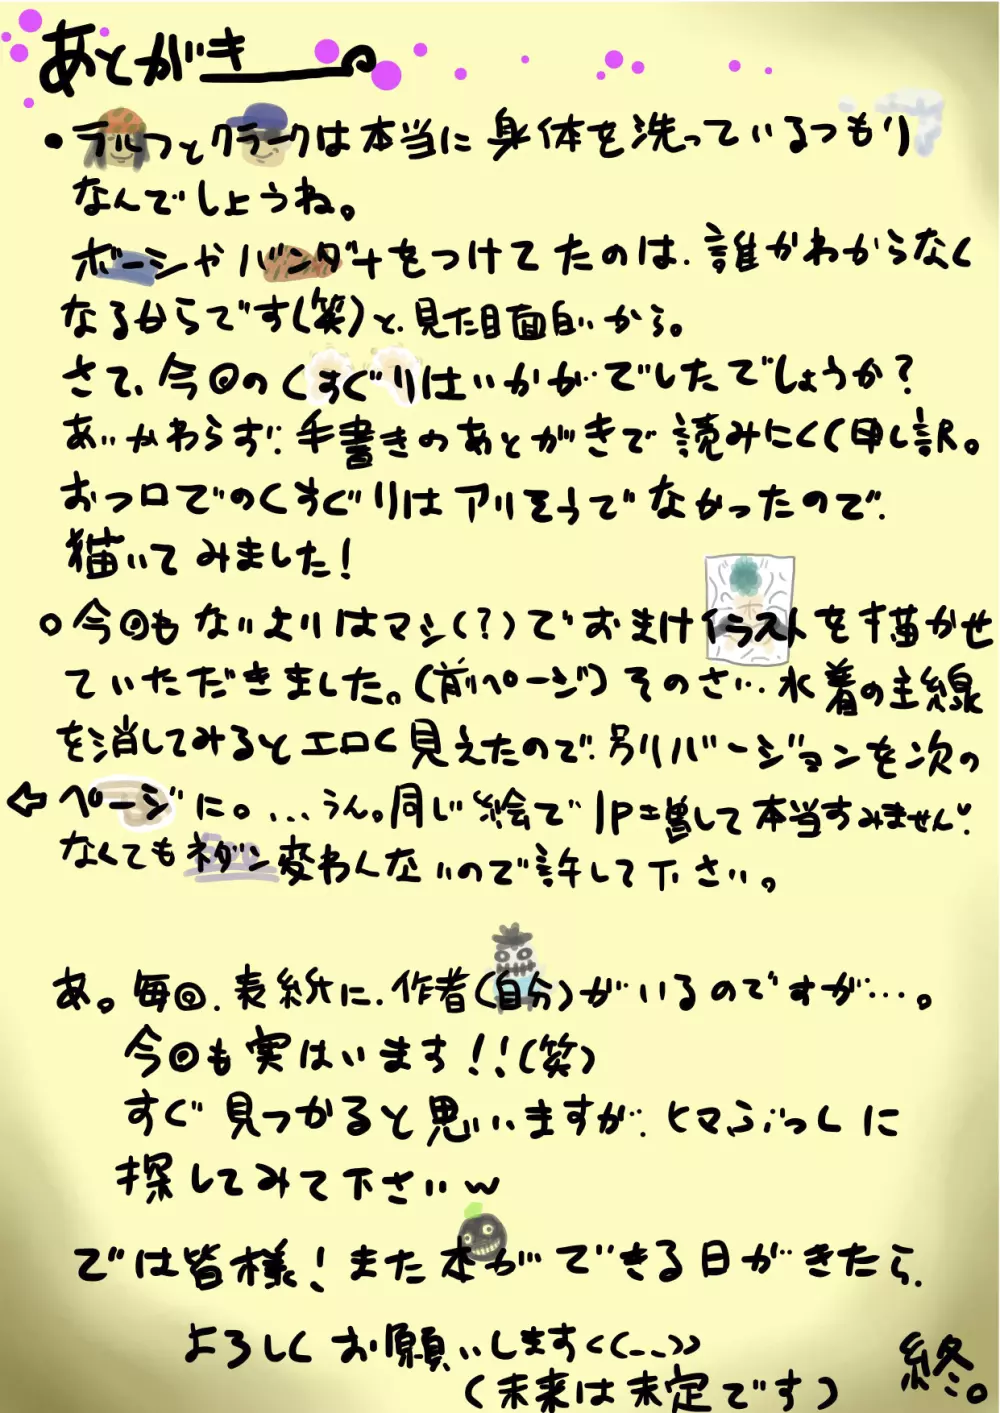 あとがき
・ラルフとクラークは本当に身体を洗っているつもり
なんでしょうね。
ボーシやバンダナをつけてたのは、誰かわからなく
なるからです(笑)と、見た目面白いから。
さて、今回のくすぐりはいかがでしたでしょうか?
あいかわらず、手書きのあとがきで読みにくく申し訳。
おフロでのくすぐりはアリそうでなかったので、
描いてみました!
○今回もないよりはマシ(?)でおまけイラストを描かせ
ていただきました。(前ページ)そのさい…水着の主線
を消してみるとエロく見えたので、別バージョンを次の
⇦ページに。...うん。同じ絵で1P増して本当すみません。
なくてもネダン変わんないので許して下さい。
あ。毎回、表紙に、作者(自分)がいるのですが…。
今回も実はいます!!(笑)
すぐ見つかると思いますが、ヒマぶっしに
探してみて下さいw
では皆様!また本ができる日がきたら、
よろしくお願いします<(_ _)>
(未来は未定です)
終。